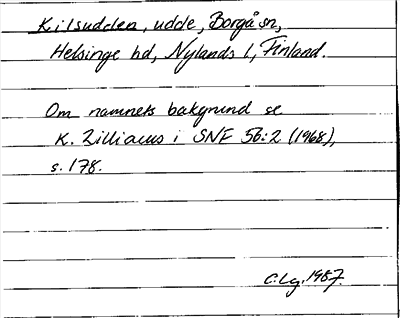 Kilsudden, udde, Borgå sn,
Helsinge hd, Nylands l, Finland.
Om namnets bakgrund se
K. Zilliacus i SNF 56:2 (1968),
s. 178.
C.Lg. 1987.